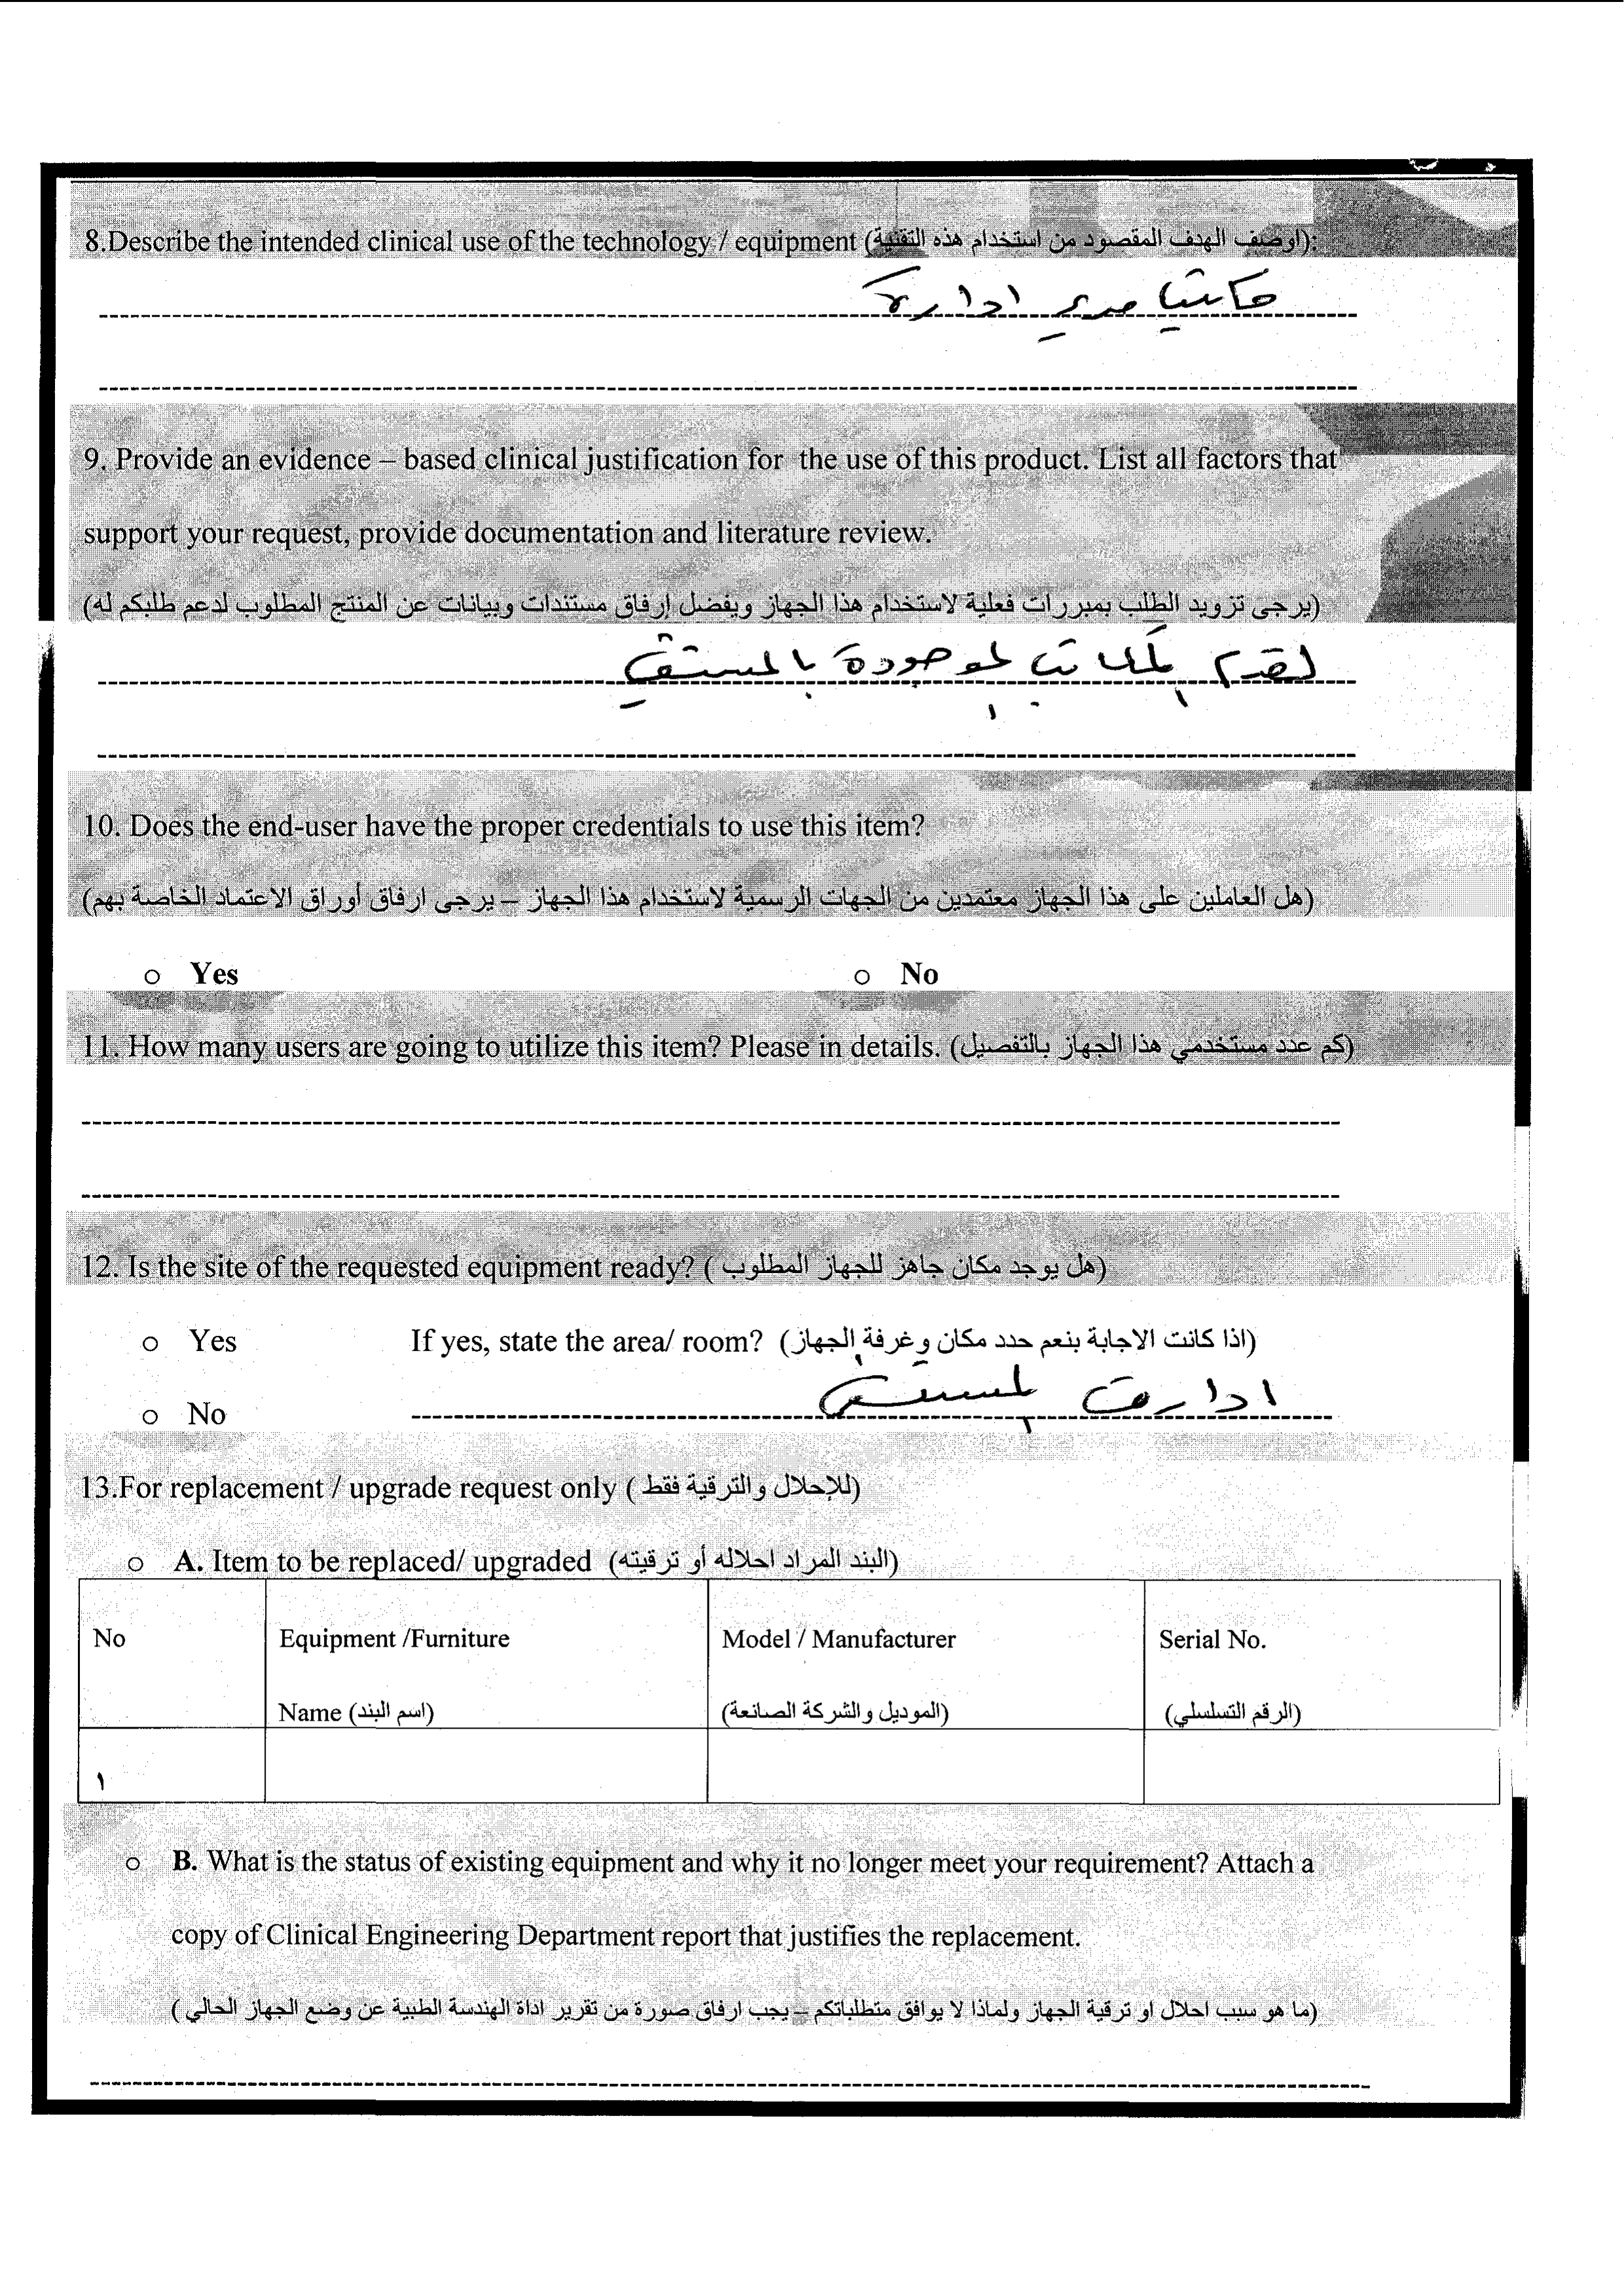 8.Describe the intended clinical use of the technology / equipment (اوصف الهدف المقصود من استخدام هذه التقنية):
مكاتب مدير ادارة
9. Provide an evidence – based clinical justification for the use of this product. List all factors that
support your request, provide documentation and literature review.
(يرجى تزويد الطلب بمبررات فعلية لاستخدام هذا الجهاز ويفضل إرفاق مستندات وبيانات عن المنتج المطلوب لدعم طلبكم له)
لقدم المكاتب الموجودة بالمستشفى
10. Does the end-user have the proper credentials to use this item?
(هل العاملين على هذا الجهاز معتمدين من الجهات الرسمية لاستخدام هذا الجهاز – يرجى ارفاق أوراق الاعتماد الخاصة بهم)
o Yes o No
11. How many users are going to utilize this item? Please in details. (كم عدد مستخدمي هذا الجهاز بالتفصيل)
12. Is the site of the requested equipment ready? (هل يوجد مكان جاهز للجهاز المطلوب )
o Yes If yes, state the area/ room? (اذا كانت الاجابة بنعم حدد مكان وغرفة الجهاز)
o No ادارة المستشفى
13.For replacement / upgrade request only (للإحلال والترقية فقط )
o A. Item to be replaced/ upgraded (البند المراد احلاله أو ترقيته)
No Equipment /Furniture Model / Manufacturer Serial No.
Name (اسم البند) (الموديل والشركة الصانعة) (الرقم التسلسلي)
١
o B. What is the status of existing equipment and why it no longer meet your requirement? Attach a
copy of Clinical Engineering Department report that justifies the replacement.
(ما هو سبب احلال او ترقية الجهاز ولماذا لا يوافق متطلباتكم – يجب ارفاق صورة من تقرير اداة الهندسة الطبية عن وضع الجهاز الحالي )